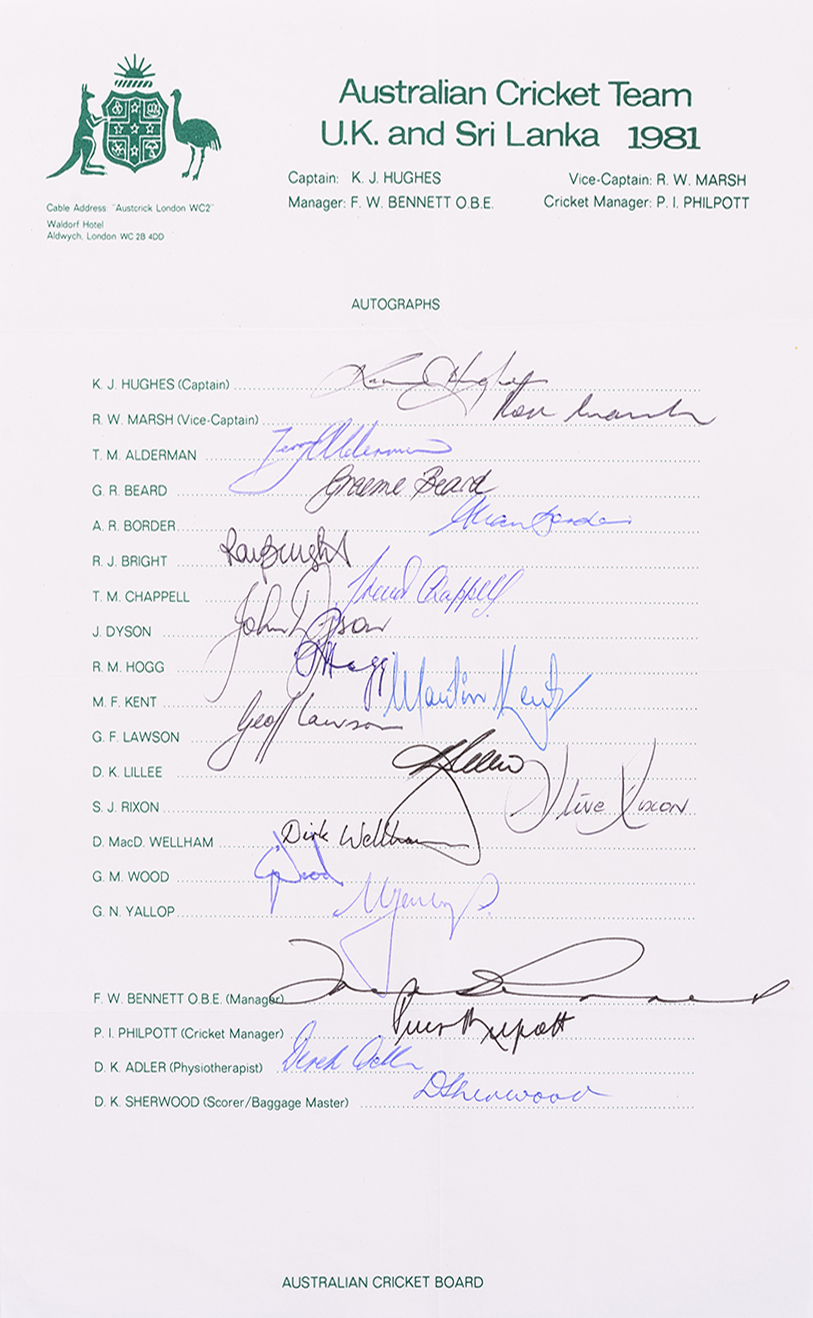 Australian Cricket Team
U.K. and Sri Lanka 1981
Captain: K. J. HUGHES Vice-Captain: R. W. MARSH
Manager: F. W. BENNETT O.B.E. Cricket Manager: P. I. PHILPOTT
Cable Address: "Austcrick London WC2"
Waldorf Hotel
Aldwych, London WC 2B 4DD
AUTOGRAPHS
K. J. HUGHES (Captain)
R. W. MARSH (Vice-Captain) Rod Marsh
T. M. ALDERMAN Terry Alderman
G. R. BEARD Graeme Beard
A. R. BORDER Allan Border
R. J. BRIGHT Ray Bright
T. M. CHAPPELL Trevor Chappell
J. DYSON John Dyson
R. M. HOGG R Hogg
M. F. KENT Martin Kent
G. F. LAWSON Geoff Lawson
D. K. LILLEE DK Lillee
S. J. RIXON Steve Rixon
D. MacD. WELLHAM Dirk Wellham
G. M. WOOD G Wood
G. N. YALLOP
F. W. BENNETT O.B.E. (Manager)
P. I. PHILPOTT (Cricket Manager) Peter Philpott
D. K. ADLER (Physiotherapist) Derek Adler
D. K. SHERWOOD (Scorer/Baggage Master) D Sherwood
AUSTRALIAN CRICKET BOARD